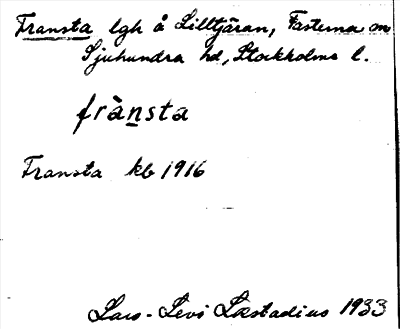 Fransta lgh å Lilltjäran, Fasterna sn
Sjuhundra hd, Stockholms l.
frànsta
Fransta kb 1916
Lars-Levi Læstadius 1933